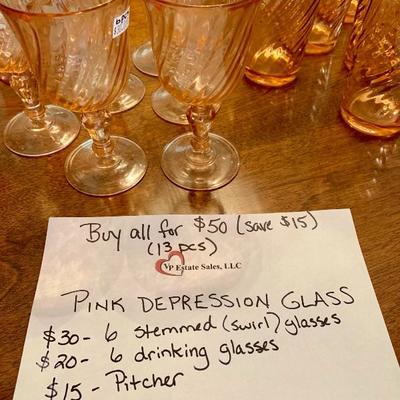 Buy all for $50 (save $15)
(13 pcs)
Vp Estate Sales, LLC
PINK DEPRESSION GLASS
$30- 6 stemmed (swirl) glasses
$20- 6 drinking glasses
$15 - Pitcher